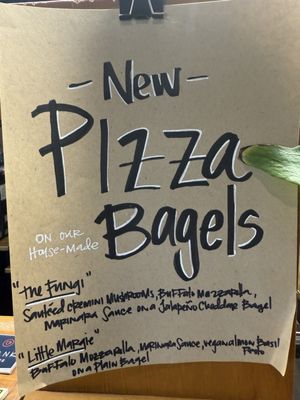 - New -
PIzza
ON OUR
HOUSE-MADE
Bagels
"The Fungi"
Sautéed cremini mushrooms, Buffalo Mozzarella,
Marinara Sauce on a Jalapeño Cheddar Bagel
"Little Margie"
Buffalo Mozzarella, Marinara Sauce, vegan almond Basil
Pesto
on a Plain Bagel